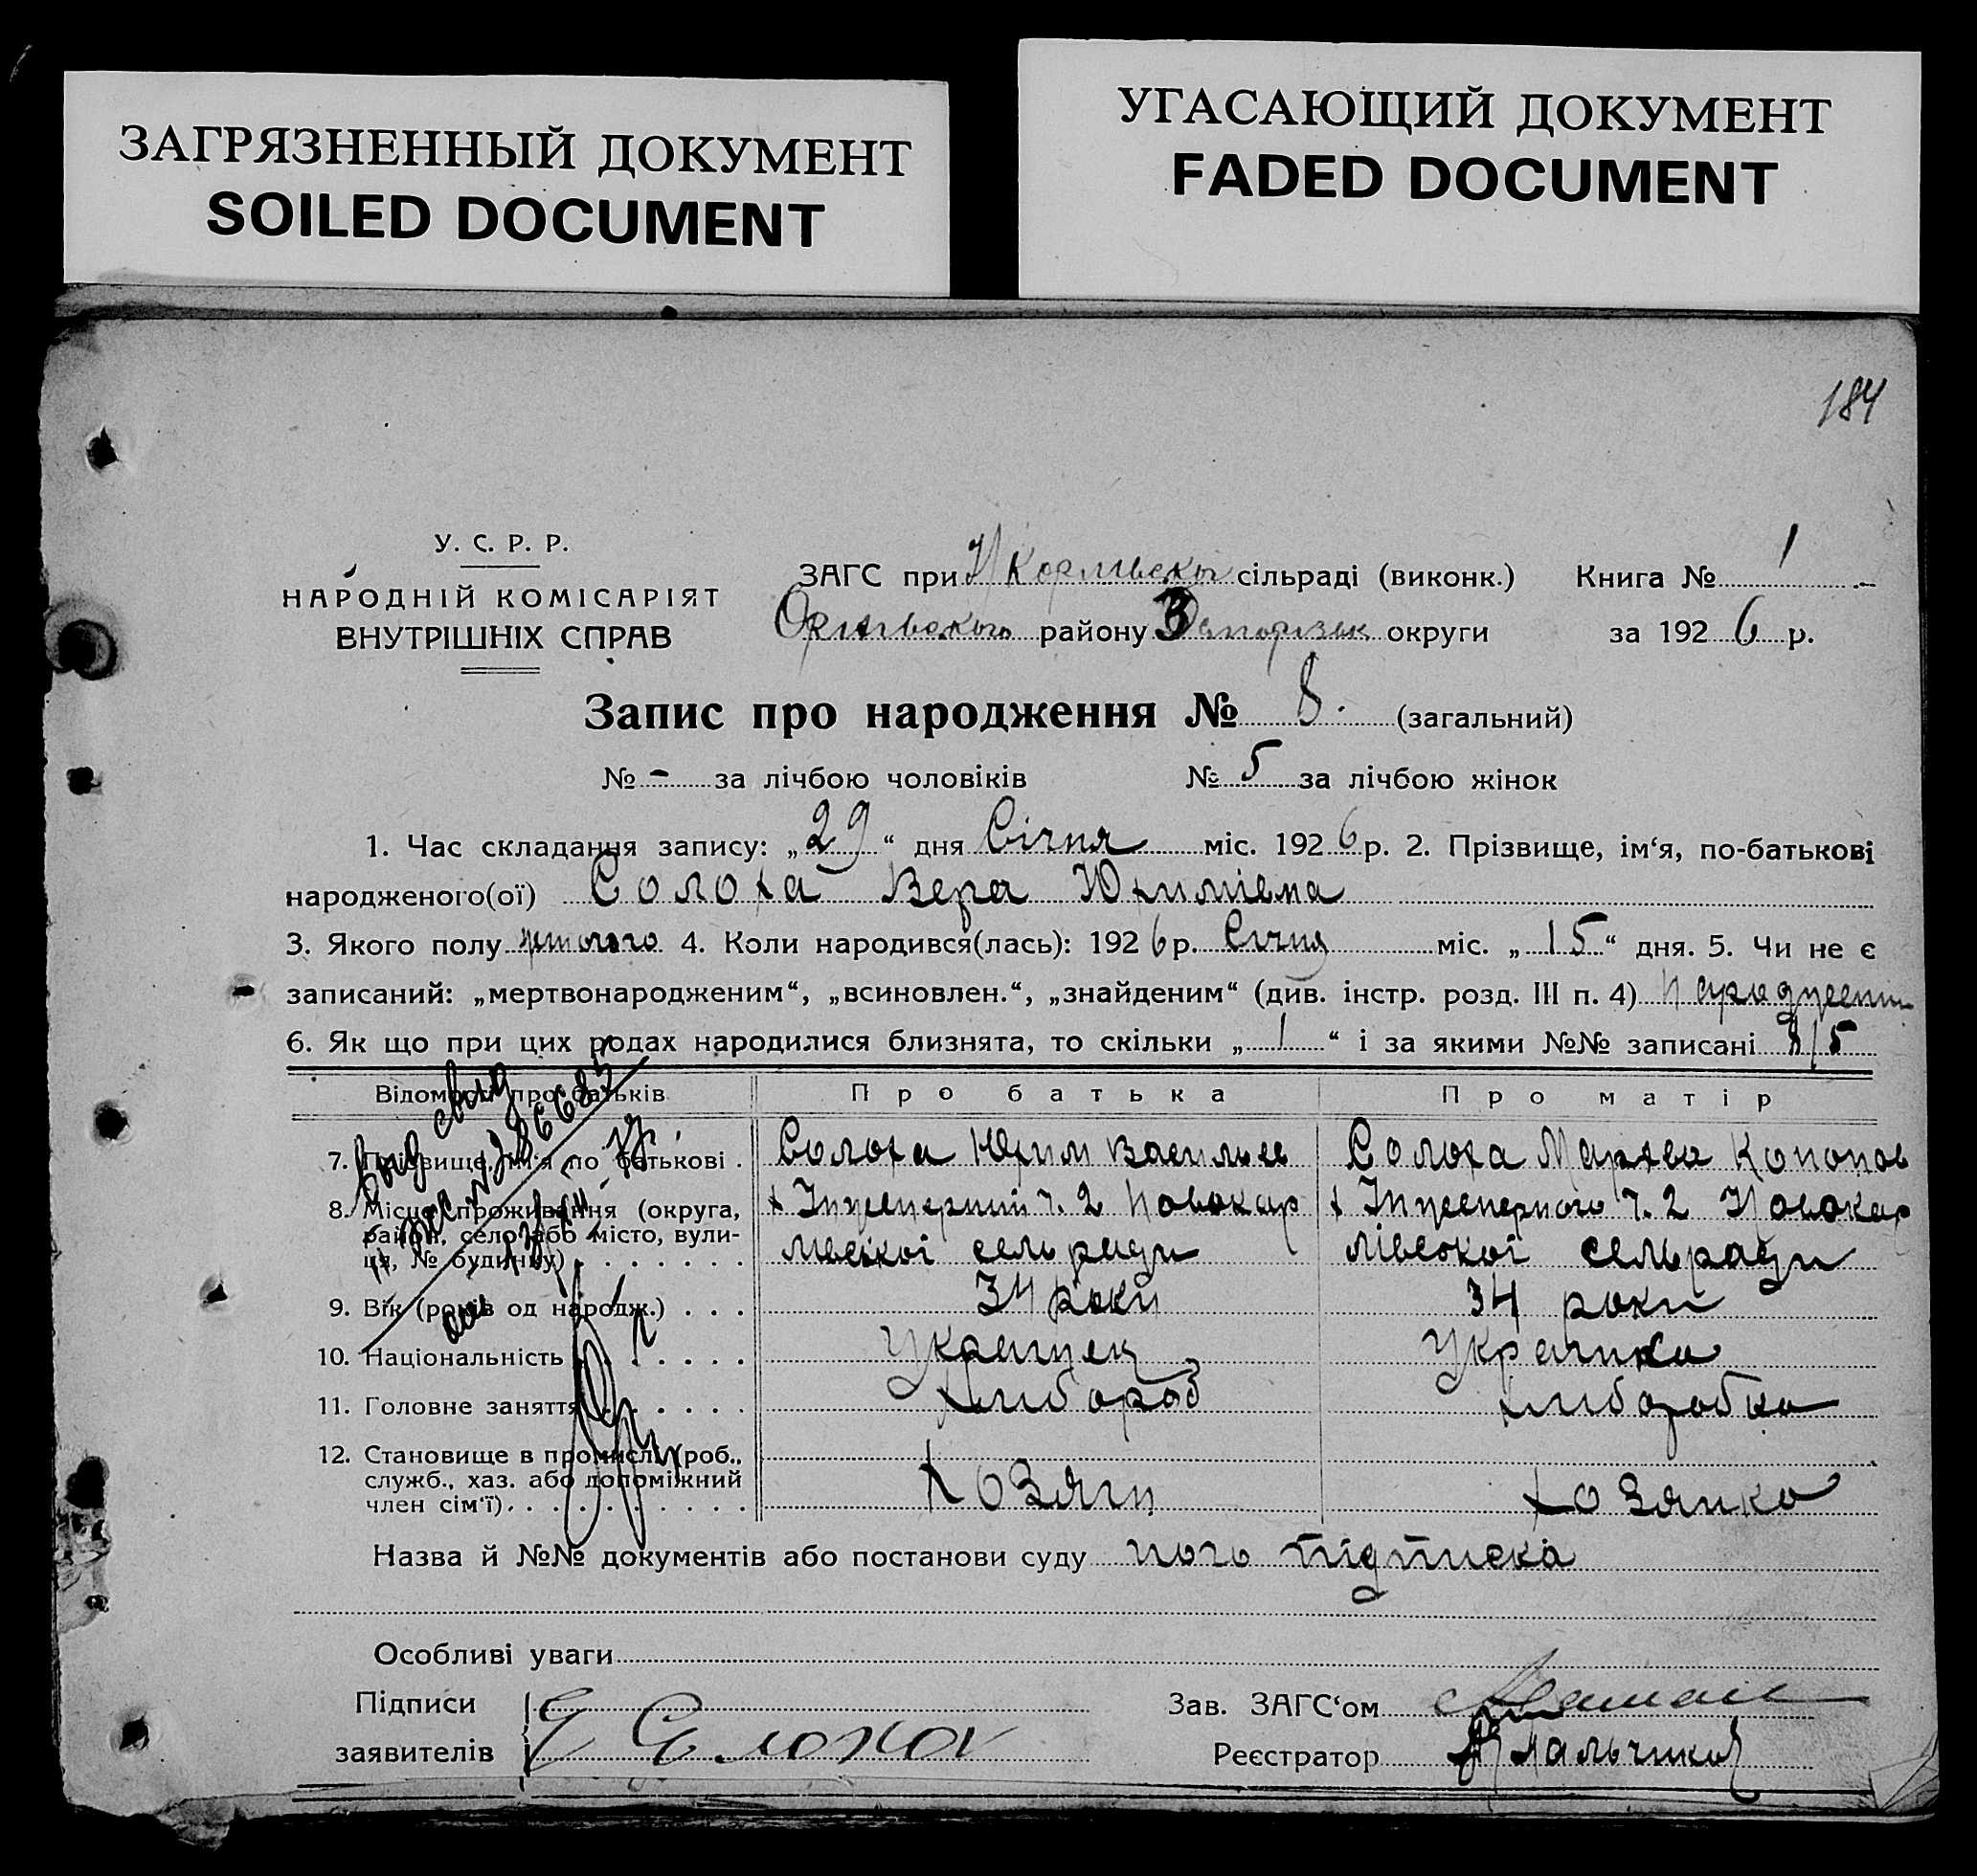 ЗАГРЯЗНЕННЫЙ ДОКУМЕНТ
SOILED DOCUMENT
УГАСАЮЩИЙ ДОКУМЕНТ
FADED DOCUMENT
184
У. С. Р. Р.
НАРОДНІЙ КОМІСАРІЯТ
ВНУТРІШНІХ СПРАВ
ЗАГС при сільраді (виконк.) Книга № 1
району округи за 1926 р.
Запис про народження № 8. (загальний)
№ - за лічбою чоловіків № 5 за лічбою жінок
1. Час складання запису: „29“ дня Січня міс. 1926 р. 2. Прізвище, ім‘я, по-батькові
народженого(ої) Солоха Вера
3. Якого полу 4. Коли народився(лась): 1926 р. Січня міс. „15“ дня. 5. Чи не є
записаний: „мертвонародженим“, „всиновлен.“, „знайденим“ (див. інстр. розд. III п. 4)
6. Як що при цих родах народилися близнята, то скільки „1“ і за якими №№ записані 8/5
Відомості про батьків Про батька Про матір
7. Прізвище, ім‘я по батькові . Солоха Юхим Васильев Солоха Марфа Кононов
8. Місце проживання (округа, х Інженерний ч. 2 Новокар х Інженерного ч. 2 Новокар
район, село або місто, вули-
ця, № будинку) лівської сельради лівської сельради
9. Вік (років од народж.) . . . 34 роки 34 роки
10. Національність Украинец Украинка
11. Головне заняття хлибороб хлиборобка
12. Становище в промислі (роб.,
служб., хаз. або допоміжний
член сім‘ї) хозяин хозяйка
Назва й №№ документів або постанови суду його підписка
Особливі уваги
Підписи Зав. ЗАГС‘ом
заявителів Реєстратор